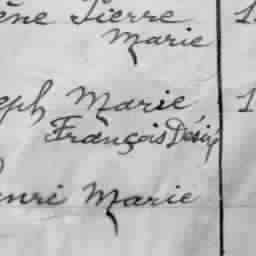 ène Pierre 1
Marie
eph Marie 1
François Désiré
enri Marie